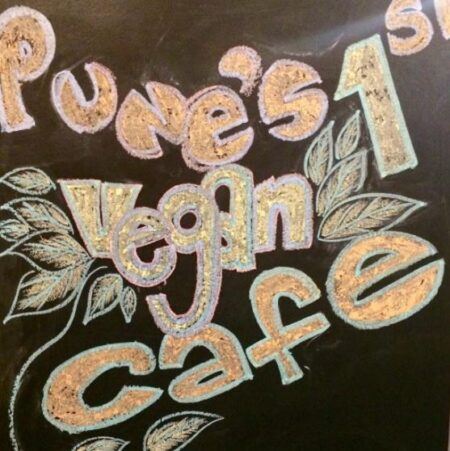 Pune's 1st
Vegan
Cafe